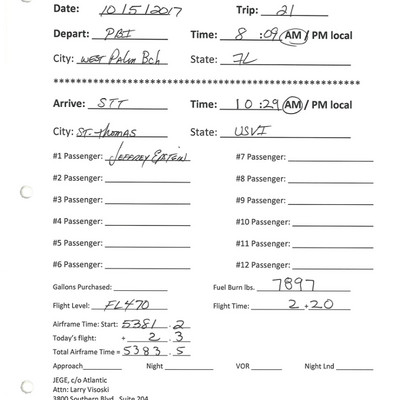 Date: 10/5/2017 Trip: 21
Depart: PBI Time: 8:09 AM / PM local
City: West Palm Bch State: FL
**********************************************************
Arrive: STT Time: 10:29 AM / PM local
City: St. Thomas State: USVI
#1 Passenger: Jeffrey Epstein #7 Passenger:
#2 Passenger: #8 Passenger:
#3 Passenger: #9 Passenger:
#4 Passenger: #10 Passenger:
#5 Passenger: #11 Passenger:
#6 Passenger: #12 Passenger:
Gallons Purchased: Fuel Burn lbs. 7897
Flight Level: FL470 Flight Time: 2+20
Airframe Time: Start: 5381.2
Today's flight: + 2.3
Total Airframe Time = 5383.5
Approach Night VOR Night Lnd
JEGE, c/o Atlantic
Attn: Larry Visoski
3800 Southern Blvd., Suite 204